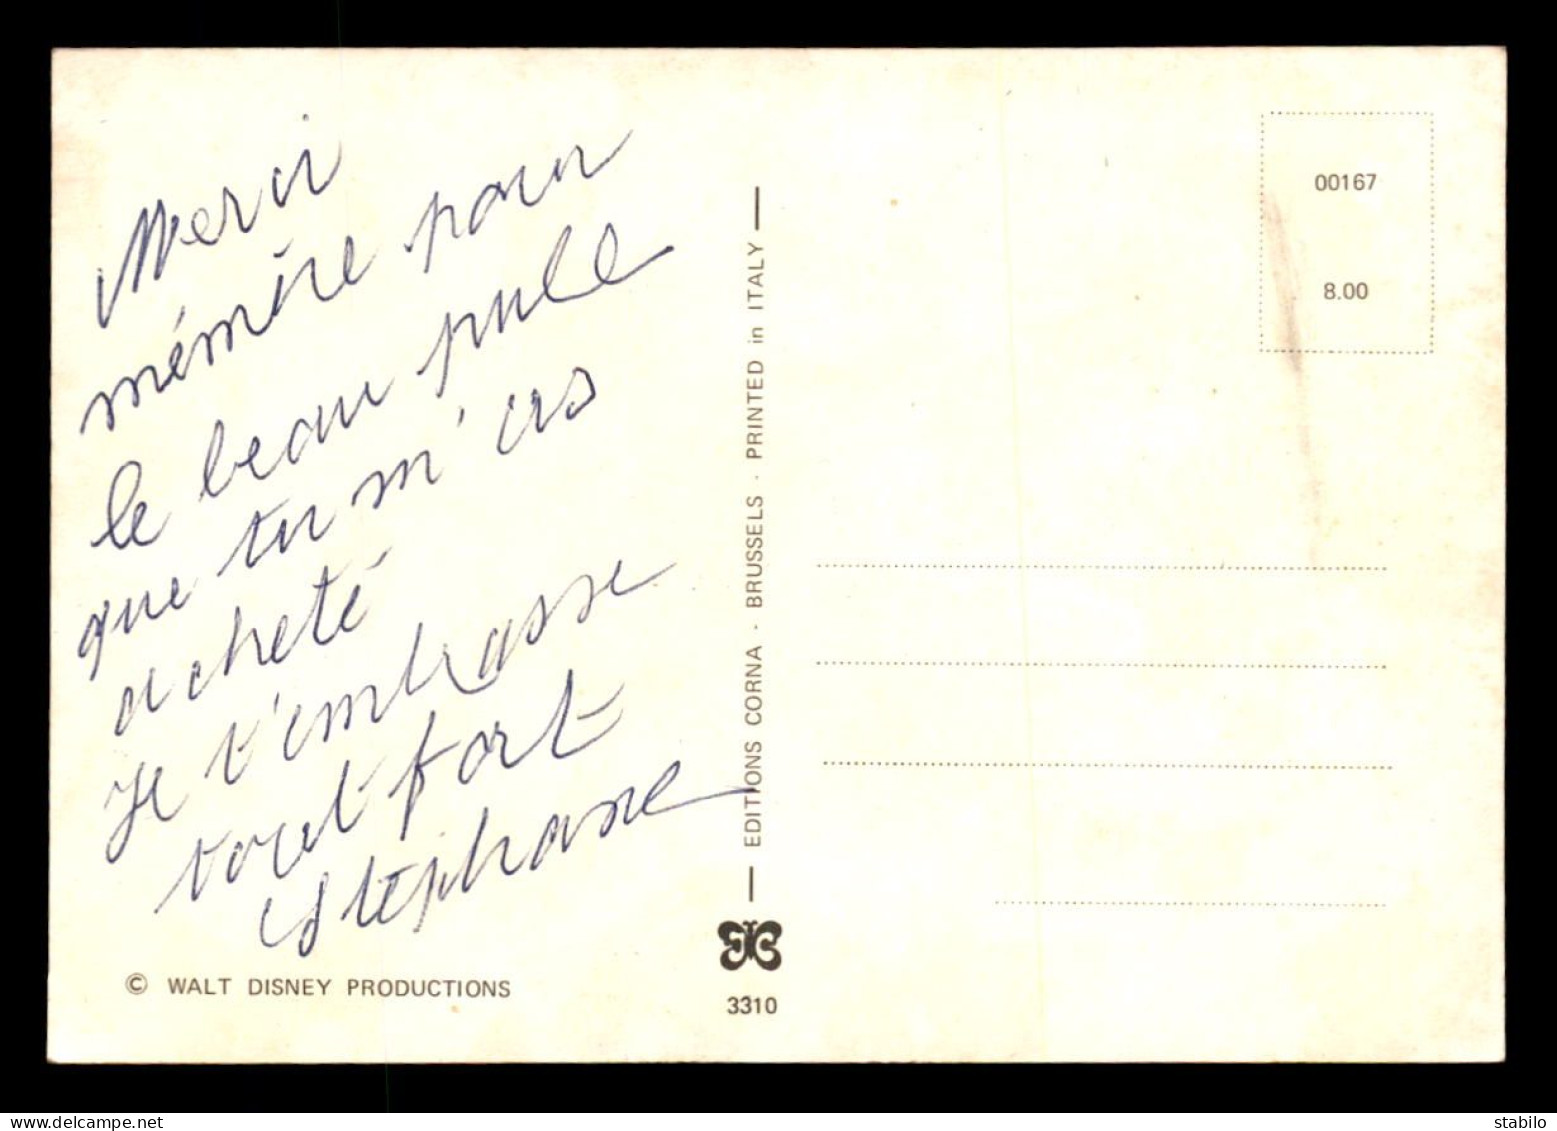 Merci
mémère pour
le beau pull
que tu m'as
acheté
je t'embrasse
tout fort
stéphane
© WALT DISNEY PRODUCTIONS
EDITIONS CORNA - BRUSSELS - PRINTED in ITALY
3310
00167
8.00
delcampe.net
stabilo